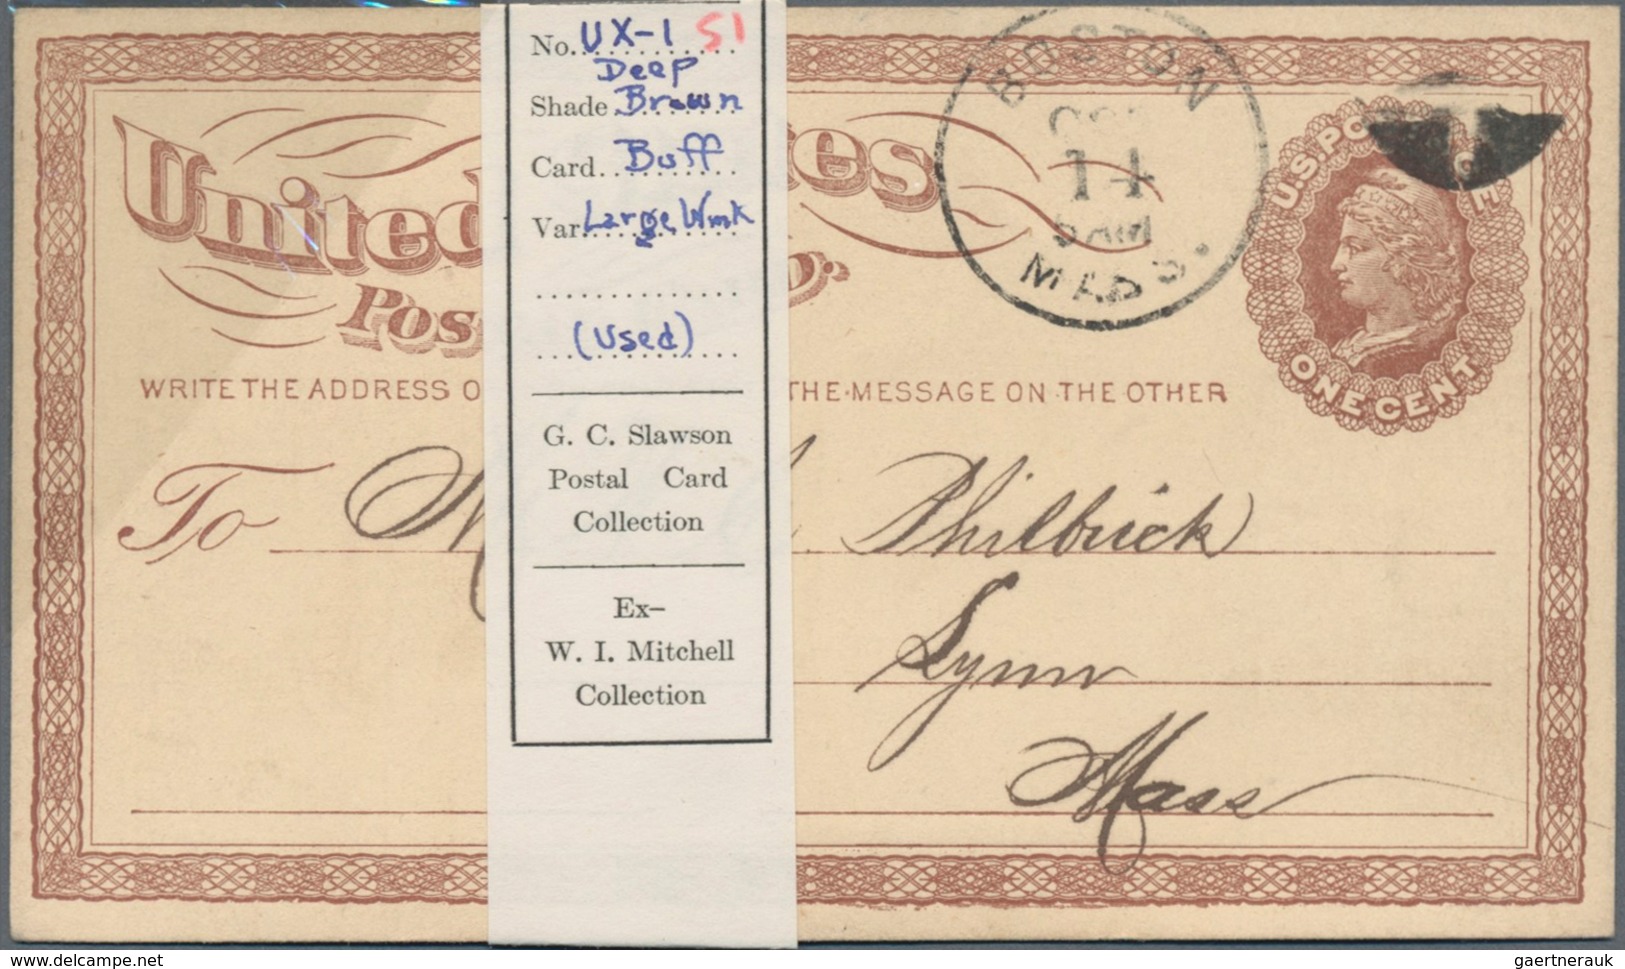 No. UX-1 51
Deep
Shade Brown
Card. Buff
Var. Large Wmk
(Used)
G. C. Slawson
Postal Card
Collection
Ex-
W. I. Mitchell
Collection
United
tes
Pos
BOSTON
OCT
14
5 AM
MASS.
U.S. PO GE
ONE CENT
WRITE THE ADDRESS O THE MESSAGE ON THE OTHER
To M Philbrick
Lynn
Mass
www.delcampe.net
gaertnerauk